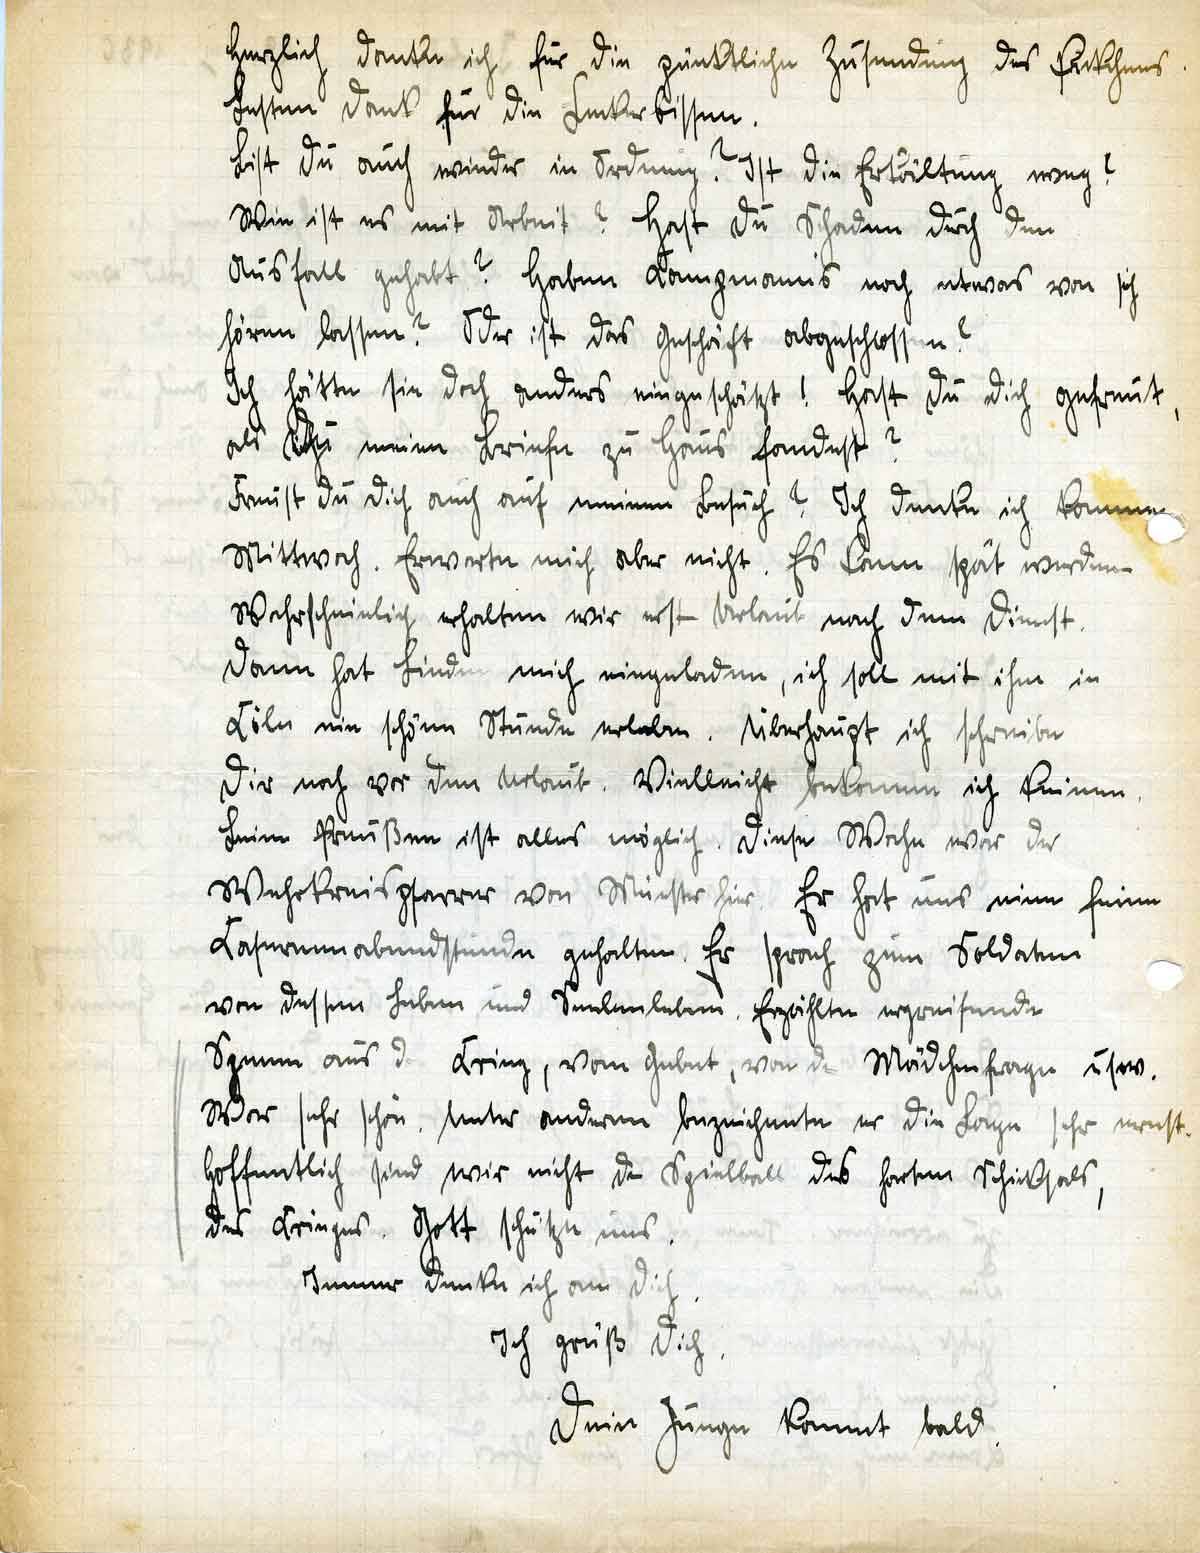 Herzlich danke ich für die pünktliche Zusendung des Paketchens.
Besten Dank für die Leckerbissen.
Bist Du auch wieder in Ordnung? Ist die Erkältung weg?
Wie ist es mit Arbeit? Hast Du Schaden durch den
Ausfall gehabt? Haben Kampmanns noch etwas von sich
hören lassen? Oder ist das Geschäft abgeschlossen?
Ich hätte sie doch anders eingeschätzt! Hast Du Dich gefreut,
als Du meine Briefe zu Haus fandest?
Freust Du Dich auch auf meinen Besuch? Ich denke ich komme
Mittwoch. Erwarte mich aber nicht. Es kann spät werden
Wahrscheinlich erhalten wir erst Urlaub nach dem Dienst.
Dann hat mich eingeladen, ich soll mit ihm in
Köln eine schöne Stunde erleben. Überhaupt ich schreibe
Dir noch vor dem Urlaub. Vielleicht bekomme ich keinen.
Beim Preußen ist alles möglich. Diese Woche war der
Wehrkreispfarrer von Münster hier. Er hat uns eine feine
Kasernenabendstunde gehalten. Er sprach zum Soldaten
von dessen Leben und Seelenleben. Erzählte ergreifende
Szenen aus d. Krieg, vom Gebet, von de Mädchenfrage usw.
War sehr schön. Unter anderem bezeichnete er die Lage sehr ernst.
Hoffentlich sind wir nicht de Spielball des harten Schicksals,
des Krieges. Gott schütze uns.
Immer denke ich an Dich.
Ich grüß Dich.
Dein Junge kommt bald.